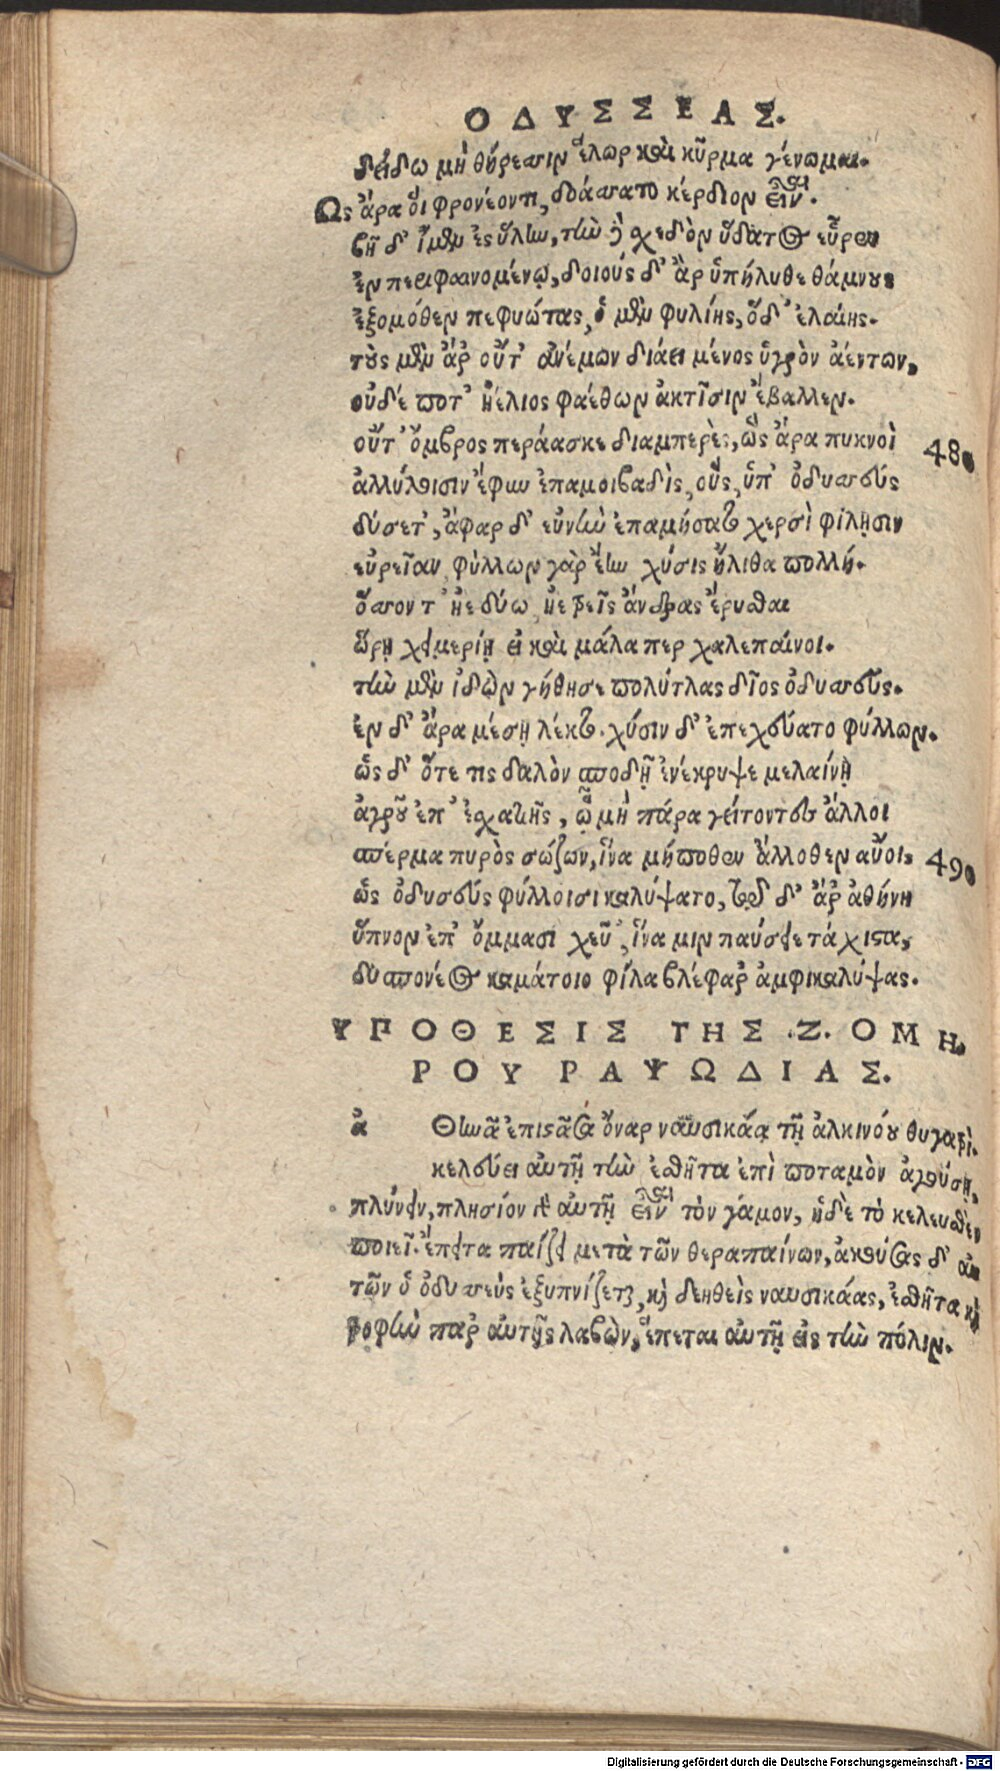 ΟΔΥΣΣΕΑΣ.
δείδω μὴ θήρεσσιν ἕλωρ καὶ κῦρμα γένωμαι.
Ως ἄρα ὅι φρονέοντι, δοάσσατο κέρδιον εἶναι.
βῆ δ' ἴμεν ἐς ὕλην, τὴν ἢ σχεδὸν ὕδατος εὗρεν
ἐν περιφαινομένῳ, δοιοὺς δ' ἂρ ὑπήλυθε θάμνους
ἐξομόθεν πεφυώτας, ὁ μὲν φυλίης, ὅδ' ἐλαίης.
τοὺς μὲν ἄρ οὔτ' ἀνέμων διάει μένος ὑγρὸν ἀέντων,
οὐδέ ποτ' ἠέλιος φαέθων ἀκτῖσιν ἔβαλλεν.
οὔτ' ὄμβρος περάασκε διαμπερὲς, ὣς ἄρα πυκνοὶ 480
ἀλλήλοισιν ἔφυν ἐπαμοιβαδὶς, οὓς, ὑπ' ὀδυσσεὺς
δύσετ', ἄφαρ δ' εὐνὴν ἐπαμήσατο χερσὶ φίλῃσιν
εὐρεῖαν φύλλων γὰρ ἔην χύσις ἤλιθα πολλή.
ὅσσον τ' ἠὲ δύω ἠὲ τρεῖς ἄνδρας ἔρυσθαι
ὥρῃ χειμερίῃ εἰ καὶ μάλα περ χαλεπαίνοι.
τὴν μὲν ἰδὼν γήθησε πολύτλας δῖος ὀδυσσεύς.
ἐν δ' ἄρα μέσῃ λέκτο. χύσιν δ' ἐπεχεύατο φύλλων.
ὡς δ' ὅτε τις δαλὸν σποδῇ ἐνέκρυψε μελαίνῃ
ἀγροῦ ἐπ' ἐσχατιῆς, ᾧ μὴ πάρα γείτονες ἄλλοι
σπέρμα πυρὸς σώζων, ἵνα μήποθεν ἄλλοθεν αὔοι, 490
ὣς ὀδυσεὺς φύλλοισι καλύψατο, τῷ δ' ἄρ ἀθήνη
ὕπνον ἐπ' ὄμμασι χεῦ', ἵνα μιν παύσειε τάχιστα,
δυσπονέος καμάτοιο φίλα βλέφαρ ἀμφικαλύψας.
ΥΠΟΘΕΣΙΣ ΤΗΣ .Ζ. ΟΜΗ
ΡΟΥ ΡΑΨΩΔΙΑΣ.
ἀ Θηνᾶ ἐπιστᾶσα ὄναρ ναυσικάᾳ τῇ ἀλκινόου θυγατρὶ.
κελεύει αὐτῇ τὴν ἐσθῆτα ἐπὶ ποταμὸν ἀγούσῃ,
πλύνειν, πλησίον γὰρ αὐτῇ εἶναι τὸν γάμον, ἡδὲ τὸ κελευσθὲν
ποιεῖ. ἔπειτα παίζει μετὰ τῶν θεραπαίνων, ἀκούσας δ' αὐ
τῶν ὁ ὀδυσσεὺς ἐξυπνίζεται, καὶ δεηθεὶς ναυσικάας, ἐσθῆτα καὶ
τροφὴν παρ αὐτῆς λαβὼν, ἕπεται αὐτῇ εἰς τὴν πόλιν.
Digitalisierung gefördert durch die Deutsche Forschungsgemeinschaft - DFG